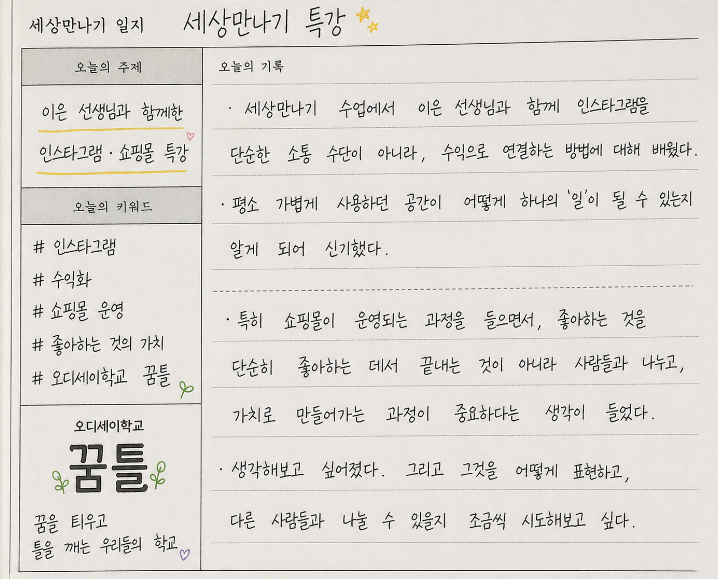 세상만나기 일지
세상만나기 특강
오늘의 주제
이은 선생님과 함께한
인스타그램 · 쇼핑몰 특강
오늘의 키워드
# 인스타그램
# 수익화
# 쇼핑몰 운영
# 좋아하는 것의 가치
# 오디세이학교 꿈틀
오디세이학교
꿈틀
꿈을 틔우고
틀을 깨는 우리들의 학교
오늘의 기록
· 세상만나기 수업에서 이은 선생님과 함께 인스타그램을
단순한 소통 수단이 아니라, 수익으로 연결하는 방법에 대해 배웠다.
· 평소 가볍게 사용하던 공간이 어떻게 하나의 '일'이 될 수 있는지
알게 되어 신기했다.
· 특히 쇼핑몰이 운영되는 과정을 들으면서, 좋아하는 것을
단순히 좋아하는 데서 끝내는 것이 아니라 사람들과 나누고,
가치로 만들어가는 과정이 중요하다는 생각이 들었다.
· 생각해보고 싶어졌다. 그리고 그것을 어떻게 표현하고,
다른 사람들과 나눌 수 있을지 조금씩 시도해보고 싶다.